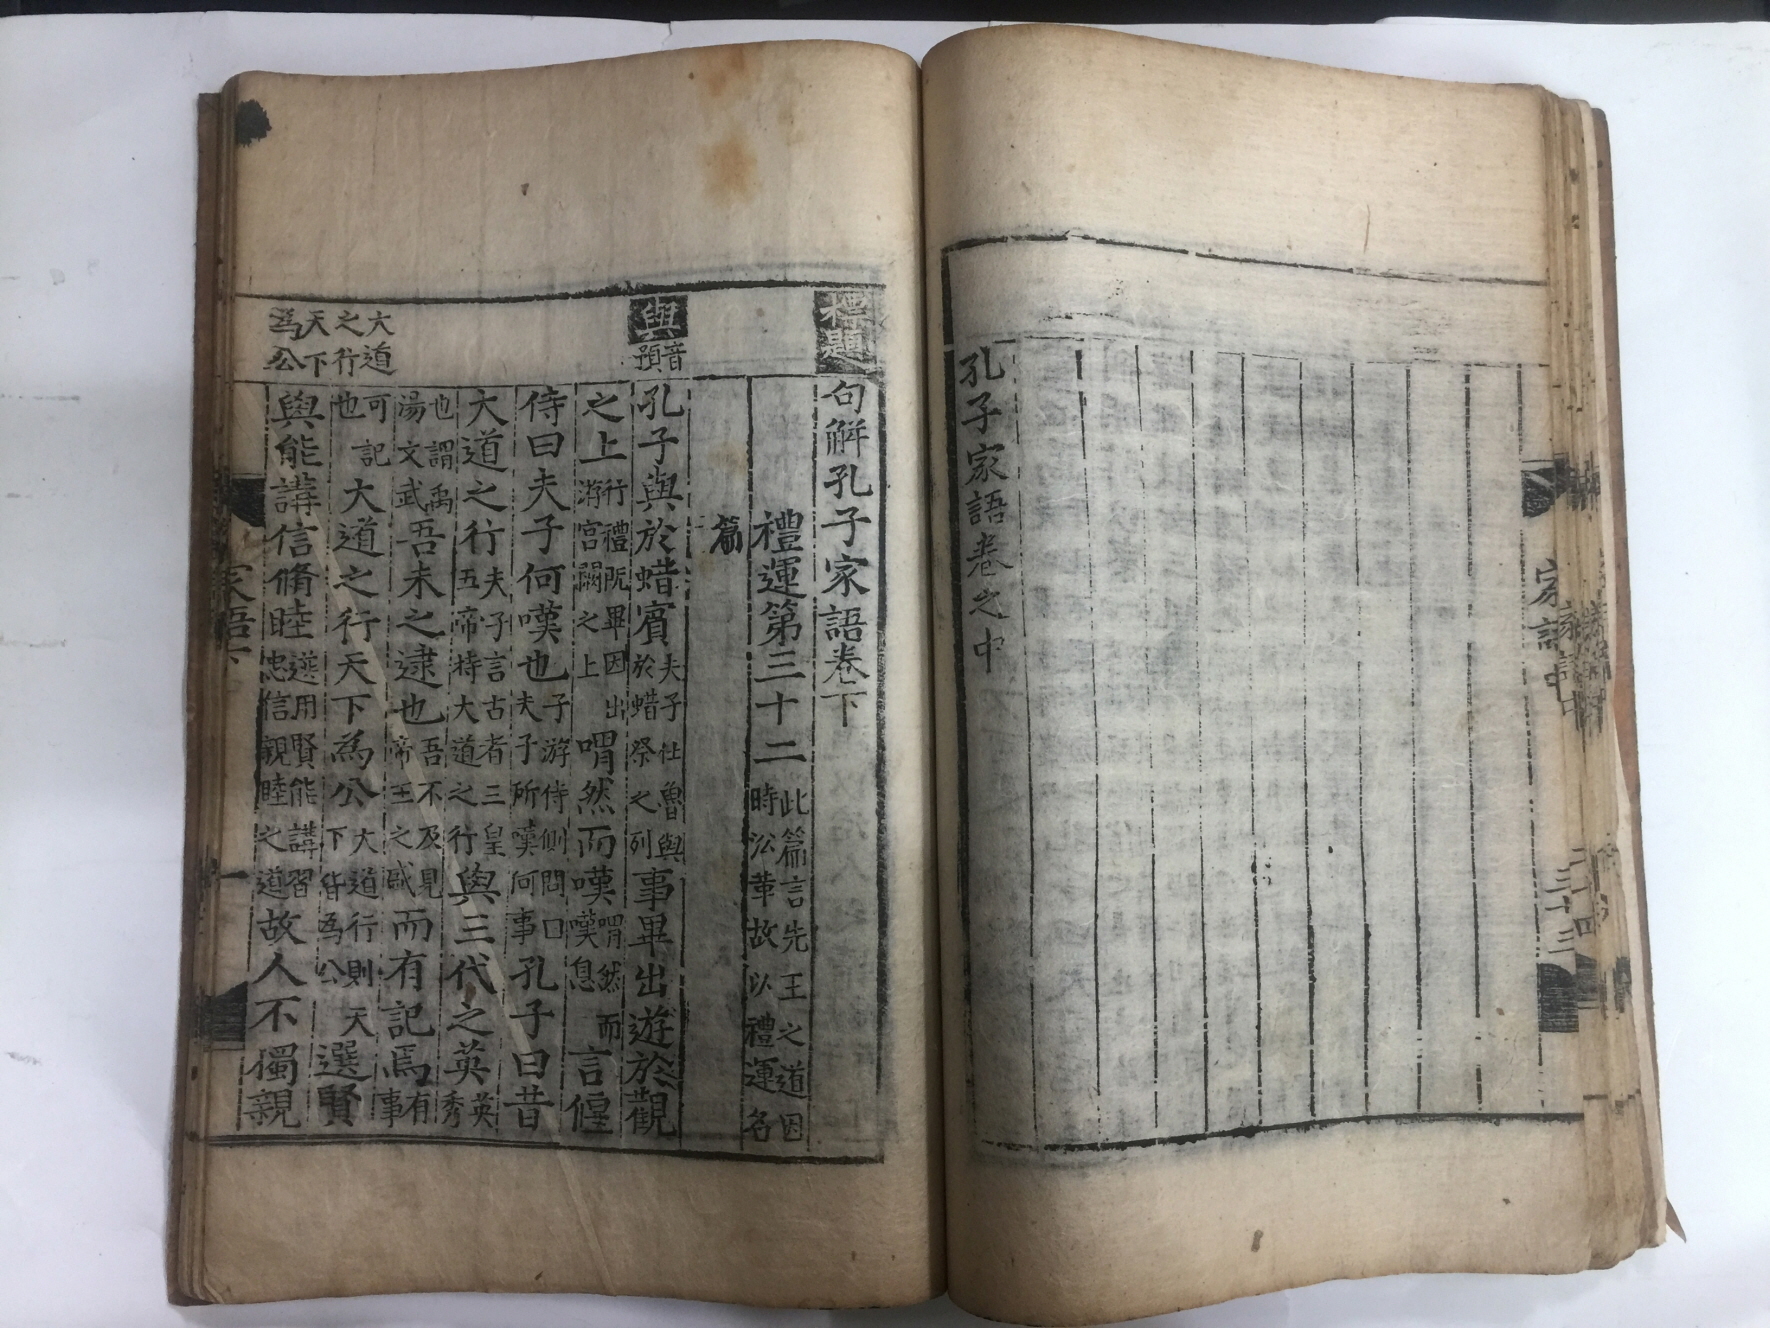 孔子家語卷之中
標題
句解孔子家語卷下
禮運第三十二 此篇言先王之道因時沿革故以禮運名
篇
與 音預
孔子與於蜡賓 夫子仕魯與於蜡祭之列 事畢出遊於觀
之上 行禮既畢因出游宮闕之上 喟然而嘆 喟然而嘆息 言偃
侍曰夫子何嘆也 子游侍側問曰夫子所嘆何事 孔子曰昔
大道之行 夫子言古者三皇五帝時大道之行 與三代之英 英秀
也謂禹湯文武 吾未之逮也 吾不及見帝王之盛 而有記焉 有事
可記也 大道之行天下為公 大道行則天下皆為公 選賢
大道
之行
天下
為公
與能講信脩睦 選用賢能講習忠信親睦之道 故人不獨親
家語下
一
家語中